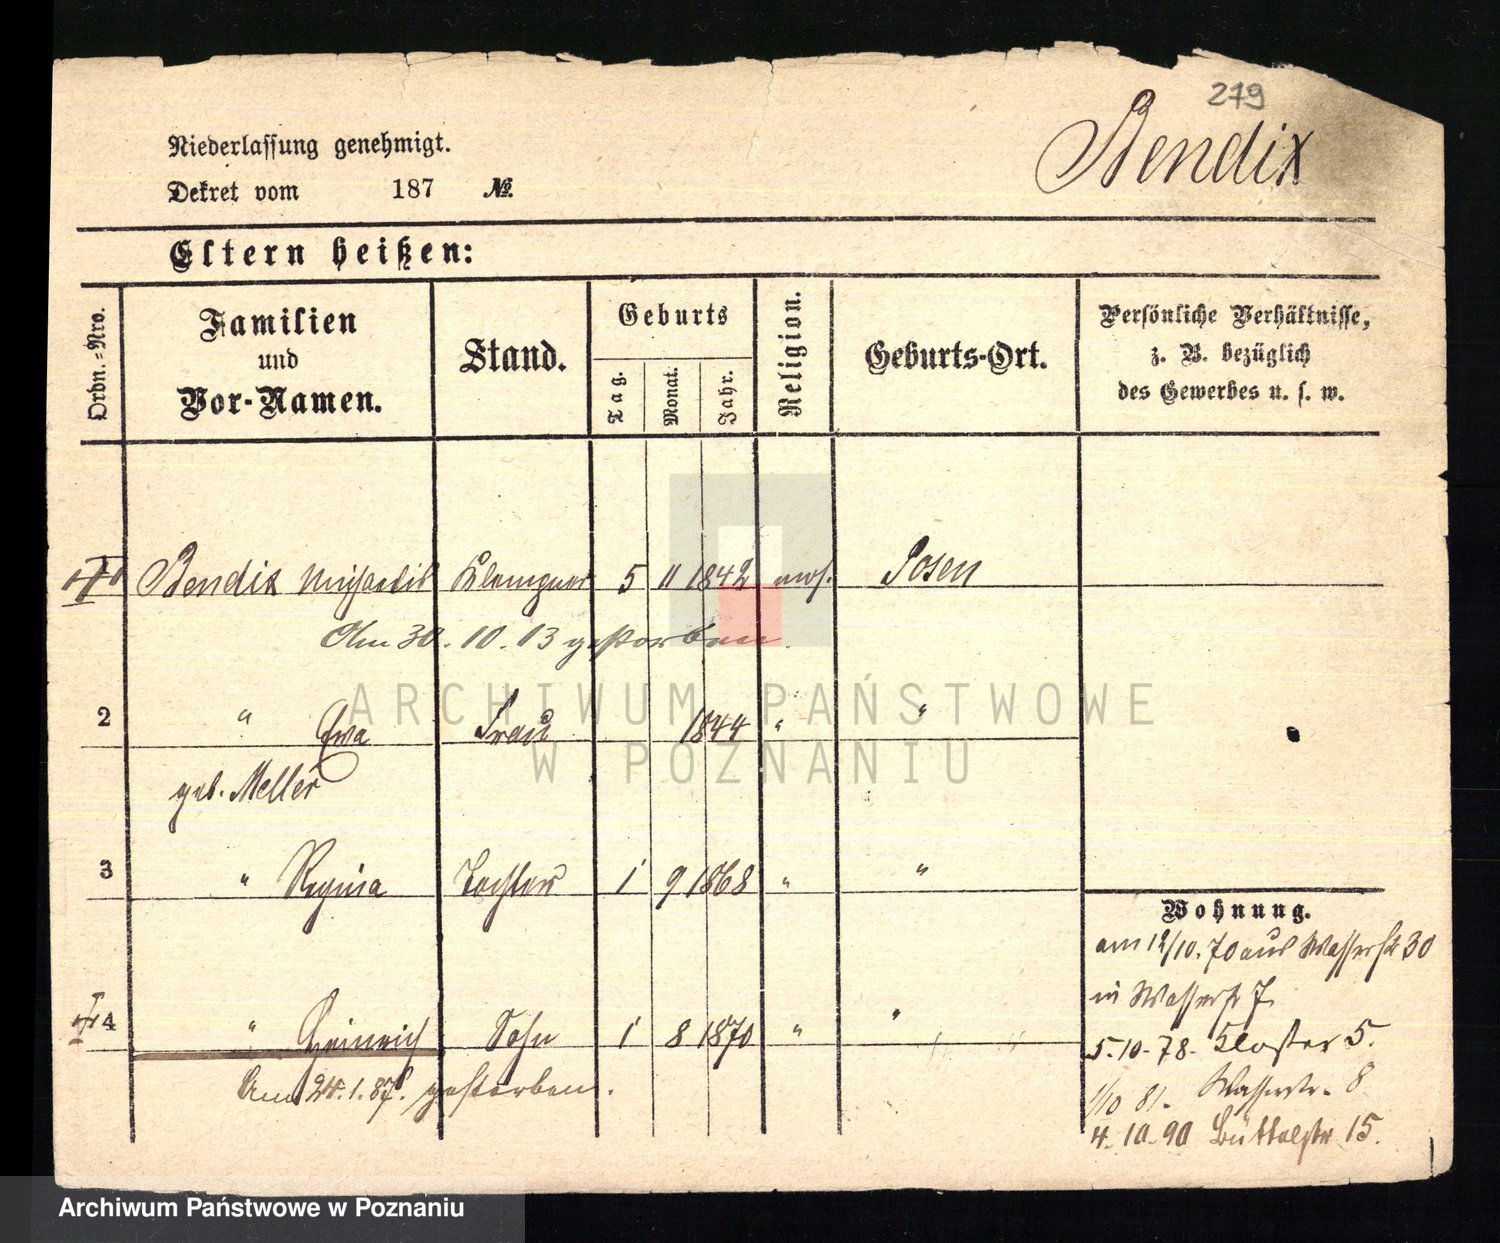 279
Bendix
Niederlassung genehmigt.
Dekret vom 187 №.
Eltern heißen:
Ordn.-Nro.
Familien und Vor-Namen.
Stand.
Geburts
Tag.
Monat.
Jahr.
Religion.
Geburts-Ort.
Persönliche Verhältnisse, z. B. bezüglich des Gewerbes u. s. w.
Bendix Klempner 5 11 1842 mos. Posen
Am 30. 10. 13 gestorben.
2 " Ewa Frau 1844 " "
geb. Meller
3 " Regina Tochter 1 9 1868 " "
4 " Heinrich Sohn 1 8 1870 " "
Am 24. 1. 87. gestorben.
Wohnung.
am 12/10. 70 aus Wasserstr 30
in Wasserstr 7.
5.10.78. Kloster 5.
1/10 81. Wasserstr. 8
4.10.90 Büttelstr 15.
ARCHIWUM PAŃSTWOWE
W POZNANIU
Archiwum Państwowe w Poznaniu